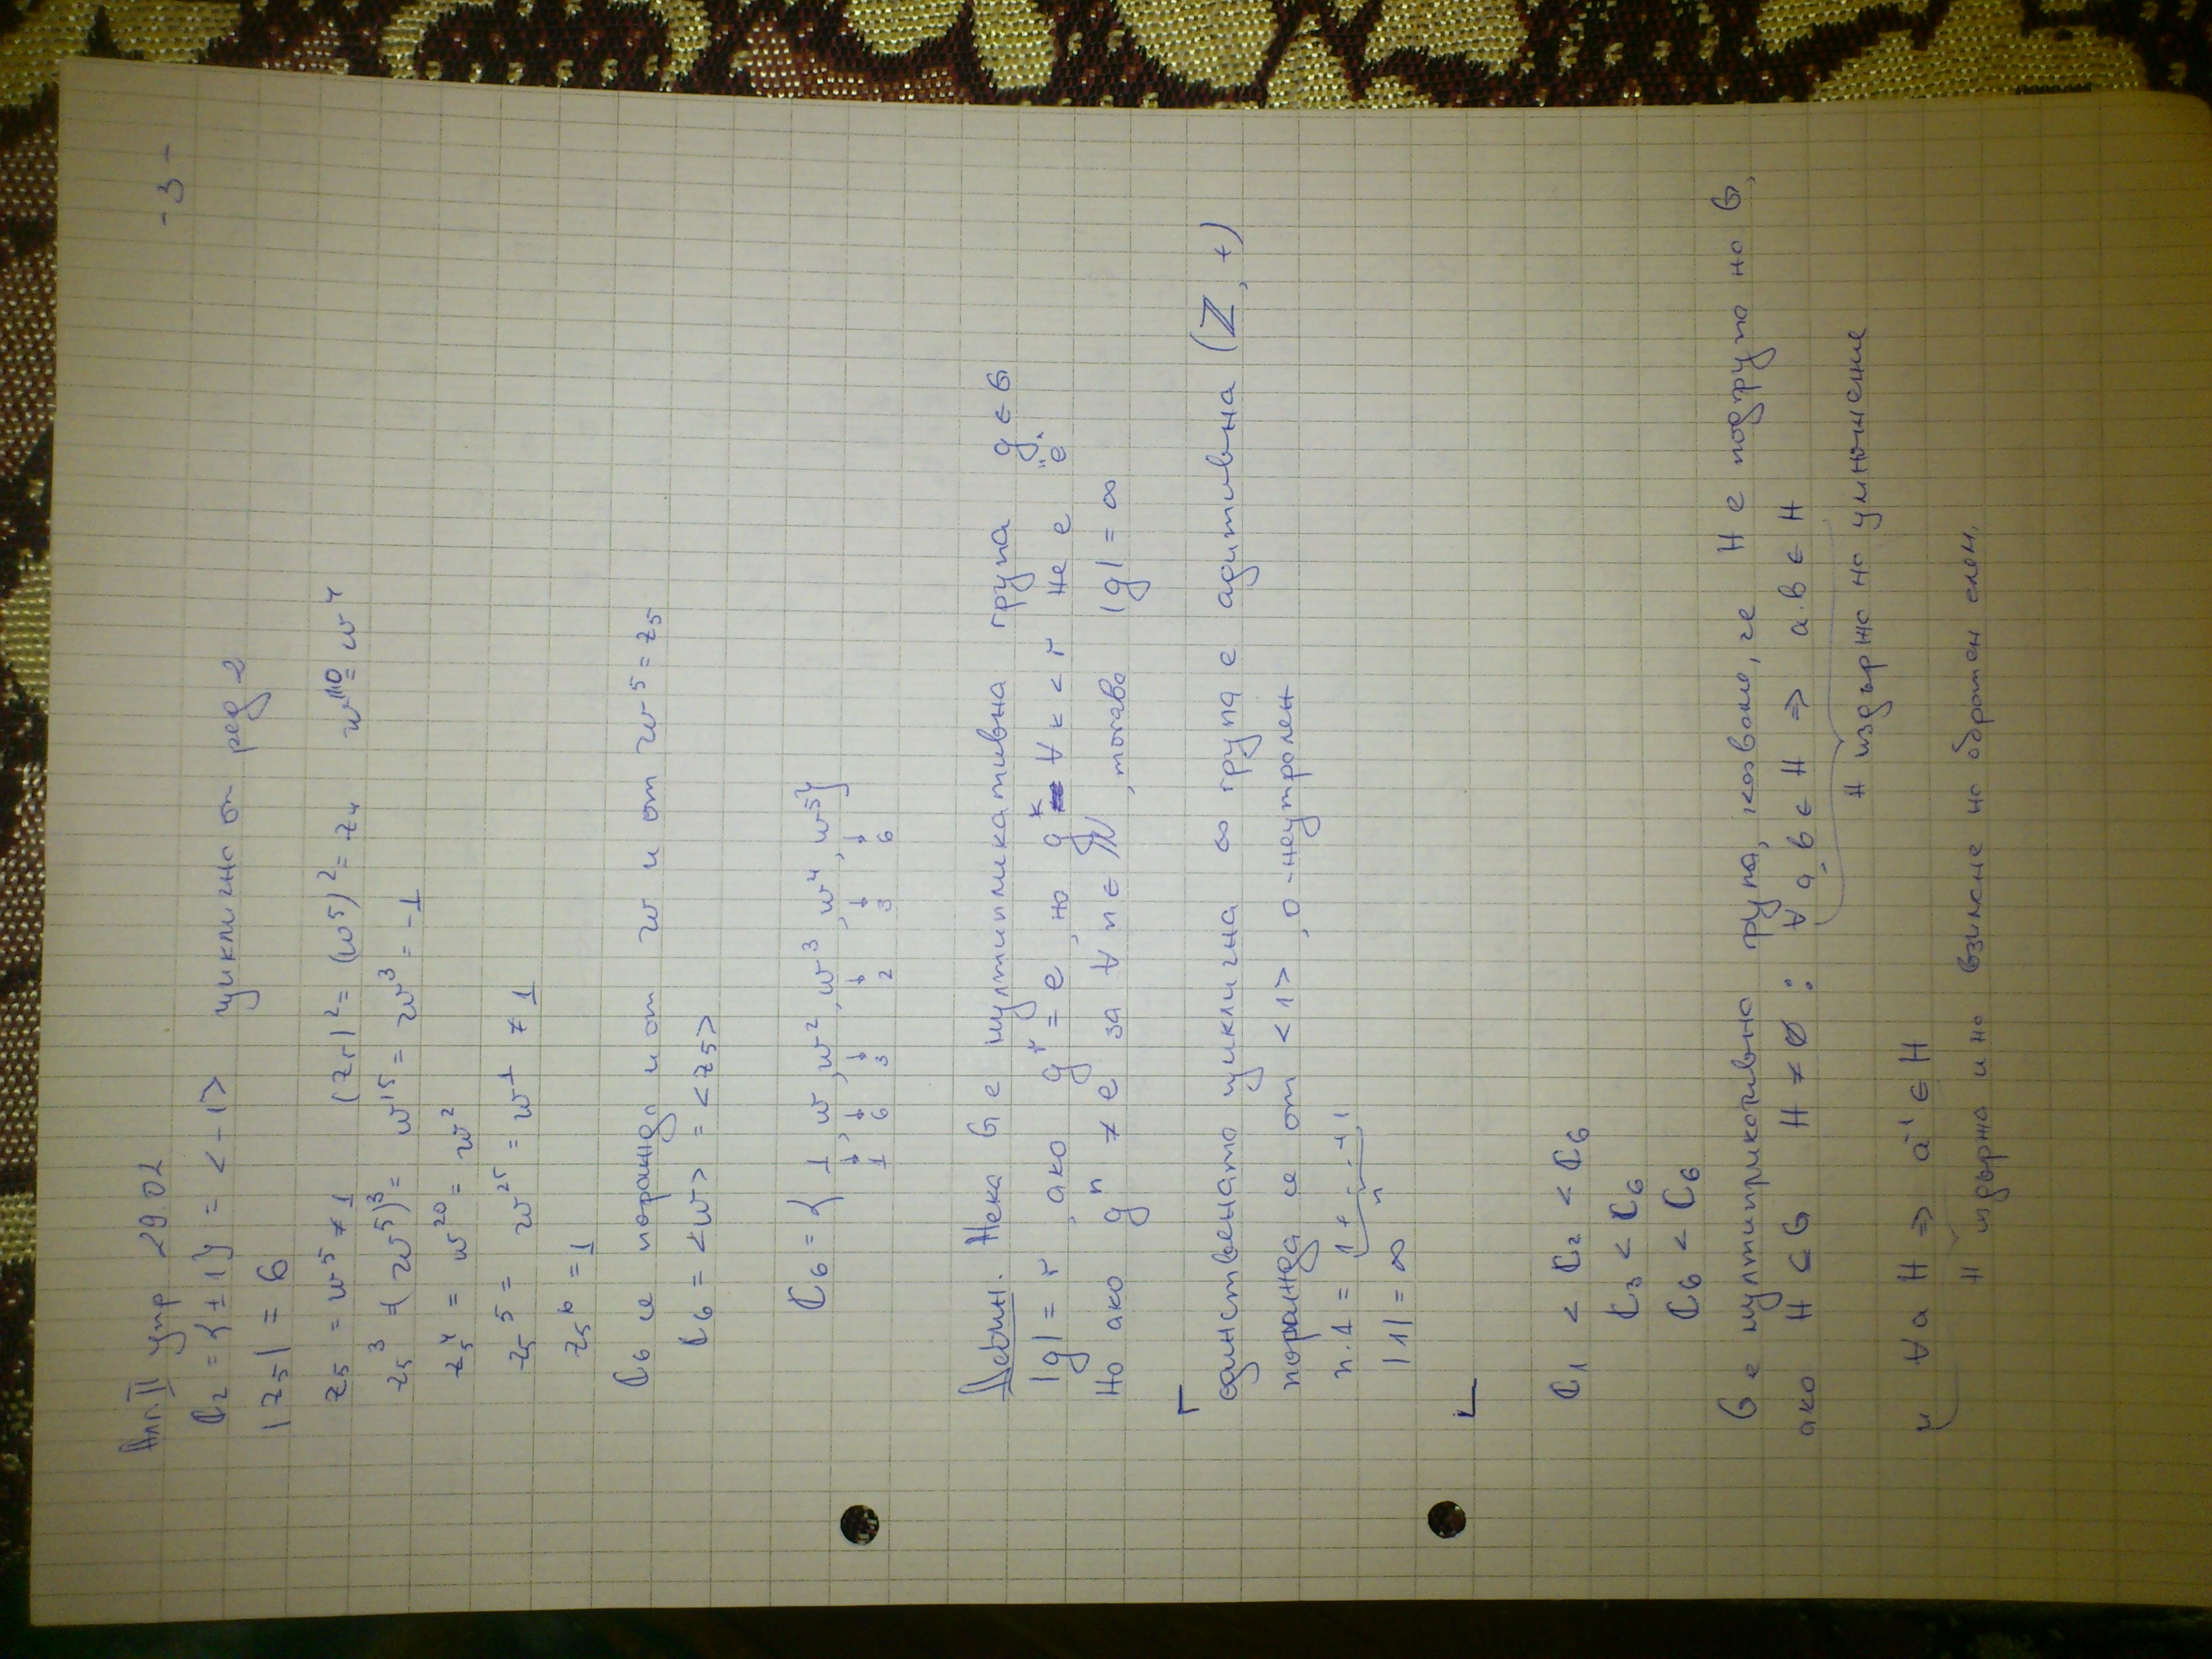 - 3 -
АлгII упр 29.02
ℂ₂ = {±1} = <-1> циклична от ред 2
|z₅| = 6
z₅ = w⁵ ≠ 1 (z₅)² = (w⁵)² = z₄ w¹⁰ = w⁴
z₅³ = (w⁵)³ = w¹⁵ = w³ = -1
z₅⁴ = w²⁰ = w²
z₅⁵ = w²⁵ = w¹ ≠ 1
z₅⁶ = 1
ℂ₆ се поражда и от w и от w⁵ = z₅
ℂ₆ = <w> = <z₅>
ℂ₆ = {1, w, w², w³, w⁴, w⁵}
↓ ↓ ↓ ↓ ↓ ↓
1 6 3 2 3 6
Дефин. Нека G е мултипликативна група g ∈ G
|g| = r, ако gʳ = e, но gᵏ ∀ k < r не е "e".
Но ако gⁿ ≠ e за ∀ n ∈ ℕ, тогава |g| = ∞
Единствената циклична ∞ група е адитивна (ℤ, +)
поражда се от <1>, 0 - неутрален
n.1 = 1 + ... + 1
n
|1| = ∞
ℂ₁ < ℂ₂ < ℂ₆
ℂ₃ < ℂ₆
ℂ₆ < ℂ₆
G е мултипликативна група, казваме, че H е подгрупа на G,
ако H ⊂ G H ≠ ∅ : ∀ a, b ∈ H => a.b ∈ H
H издържа на умножение
и ∀ a H => a⁻¹ ∈ H
H издържа и на взимане на обратен елем.